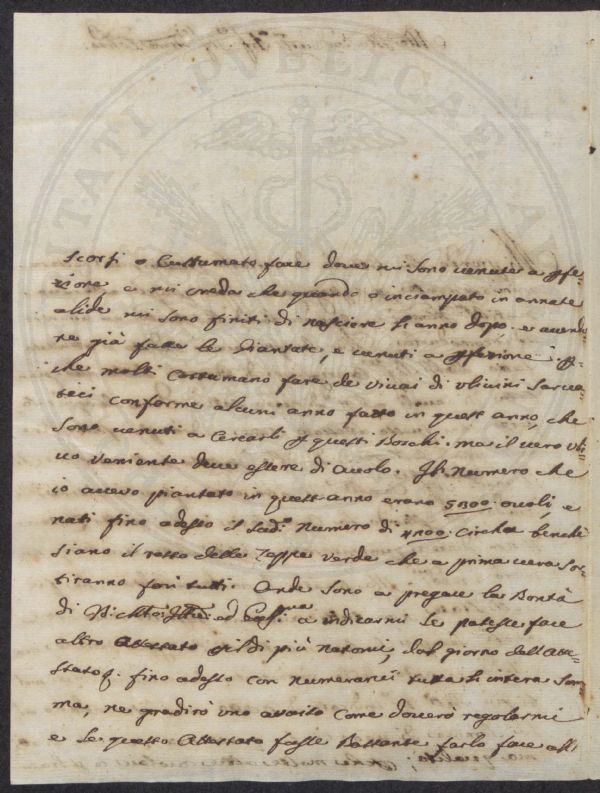 PUBLICAE
scorsi o Custumato fare dove mi sono venute a perfe-
zione e mi creda che quando o inciampato in annate
alide mi sono finiti di nasciere l'anno dopo. e avendo-
ne già fatte le Piantate, e venuti a perfezione. per-
che molti Costumano fare de vivai di ulivini Sarva-
tici conforme alcuni anno fatto in quest'anno, che
sono venuti a Cercarli per questi Boschi. ma il vero uli-
vo veniente deve essere di ovolo. Il Numero che
io avevo piantato in quest'anno erano 5300 ovoli e
nati fino adesso il sud.o Numero di 4700 Circha benchi
siano il resto delle Zappe verde che a primavera Sor-
tiranno fori tutti. Onde sono a pregare la Bontà
di ed a indicarmi se potesse fare
altro Attestato di più Natomi, dal giorno dell'Atte-
stato fino adesso con Numerarci tutta l'intera Som-
ma, ne gradirò uno avviso Come doverò regolarmi
e se questo Attestato fosse Bastante farlo fare all